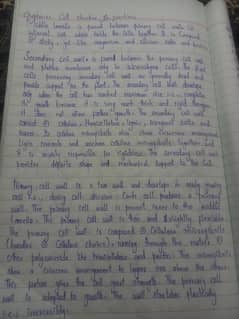 Organism Cell structure & functions
middle lamella is found between primary cell walls of
adjacent cell which holds the cells together. It is composed
of sticky, gel like magnesium and calcium salts and pectins.
Secondary cell wall is found between the primary cell wall
and plasma membrane only in sclerenchyma cells. The plant
cells possessing secondary cell wall are generally dead and
provide support to the plant. The secondary cell wall develops
only when the cell has reached maximum size i.e. completes
its growth because it is very much thick and rigid therefore
it does not allow further growth. The secondary cell wall
consist of cellulose, Hemicellulose, lignin, inorganic salts and
waxes. The cellulose microfibrils also show crisscross arrangement
lignin cements and anchors cellulose microfibrils together and
it is mainly responsible for rigidness. The secondary cell wall
provides definite shape and mechanical support to the Cell.
Primary cell wall is a true wall and develops in newly growing
cell i.e., during cell division. Each cell produces a primary
wall. The primary cell wall is present inner to the middle
lamella. The primary cell wall is thin and slightly flexible.
The primary cell wall is composed of Cellulose microfibrils
(bundles of Cellulose chains) running through the matrix of
other polysaccharide like hemicellulose and pectin. The microfibrils
show a crisscross arrangement in layers one above the other.
This pattern gives the cell great strength. The primary cell
wall is adapted to growth. The wall stretches plastically
i.e., irreversibly.